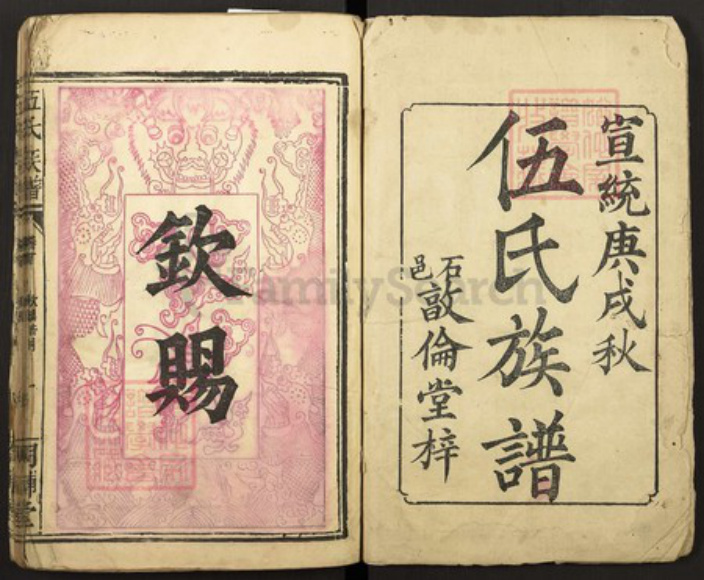 宣統庚戌秋
伍氏族譜
石邑敦倫堂梓
欽賜
伍氏族譜
FamilySearch